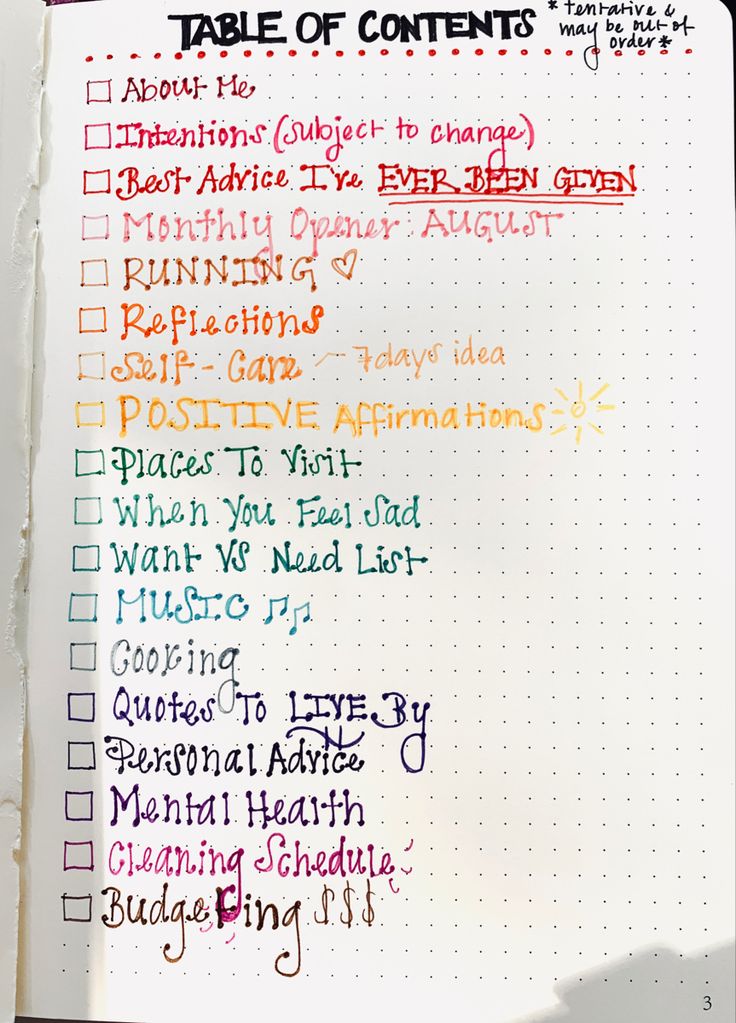 TABLE OF CONTENTS
*tentative &
may be out of
order*
About Me
Intentions (subject to change)
Best Advice I've EVER BEEN GIVEN
Monthly Opener: AUGUST
RUNNING ♡
Reflections
Self-Care ~ 7 days idea
POSITIVE Affirmations
Places To Visit
When You Feel Sad
Want VS Need List
MUSIC ♫♫
Cooking
Quotes To LIVE By
Personal Advice
Mental Health
Cleaning Schedule
Budgeting $$$
3